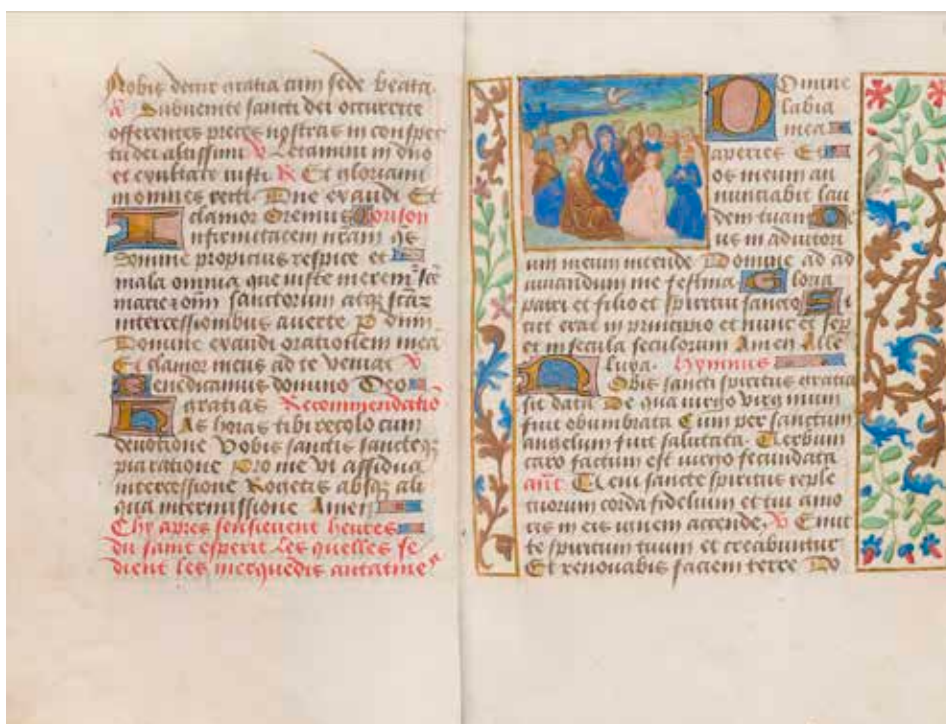 Nobis detur gratia cum sede beata.
Subuenite sancti dei occurrite
offerentes preces nostras in conspec
tu dei altissimi V Letamini in dno
et exultate iusti R Et gloriami
ni omnes recti Dne exaudi Et
clamor Oremus Orison
Infirmitatem nram qs
Domine propicius respice et
mala omnia que iuste meremr
marie omi sanctorum atqz
intercessionibus auerte P dnm
Domine exaudi orationem mea
Et clamor meus ad te veniat V
Benedicamus domino Deo
gratias Recommendatio
Has horas tibi recolo cum
deuotione Vobis sanctis sancteqz
pia ratione Pro me vt assidua
intercessione Rogetis absqz ali
qua intermissione Amen
Chy apres sensieuent heures
du saint esperit Les quelles se
dient les merquedis
Domine
labia
mea
aperies Et
os meum an
nuntiabit lau
dem tuam De
us in adiutori
um meum intende Domine ad ad
iuuandum me festina Gloria
patri et filio et spiritui sancto Si
cut erat in principio et nunc et sep
et in secula seculorum Amen Alle
luya. Hymnus
Nobis sancti spiritus gratia
sit data De qua uirgo virginum
fuit obumbrata Cum per sanctum
angelum fuit salutata. Verbum
caro factum est uirgo fecundata
ant Veni sancte spiritus reple
tuorum corda fidelium et tui amo
ris in eis ignem accende. V Emit
te spiritum tuum et creabuntur
Et renouabis faciem terre Do